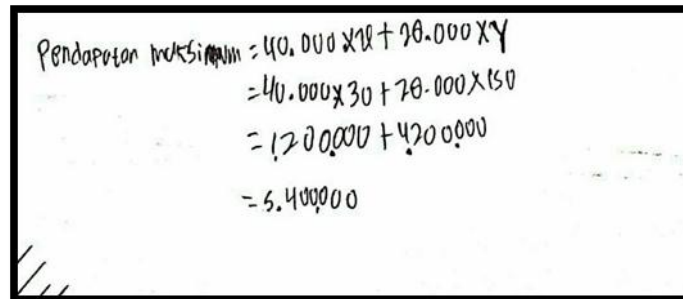 Pendapatan maksimum = 40.000 x x + 28.000 x y
= 40.000 x 30 + 28.000 x 150
= 1.200.000 + 4.200.000
= 5.400.000